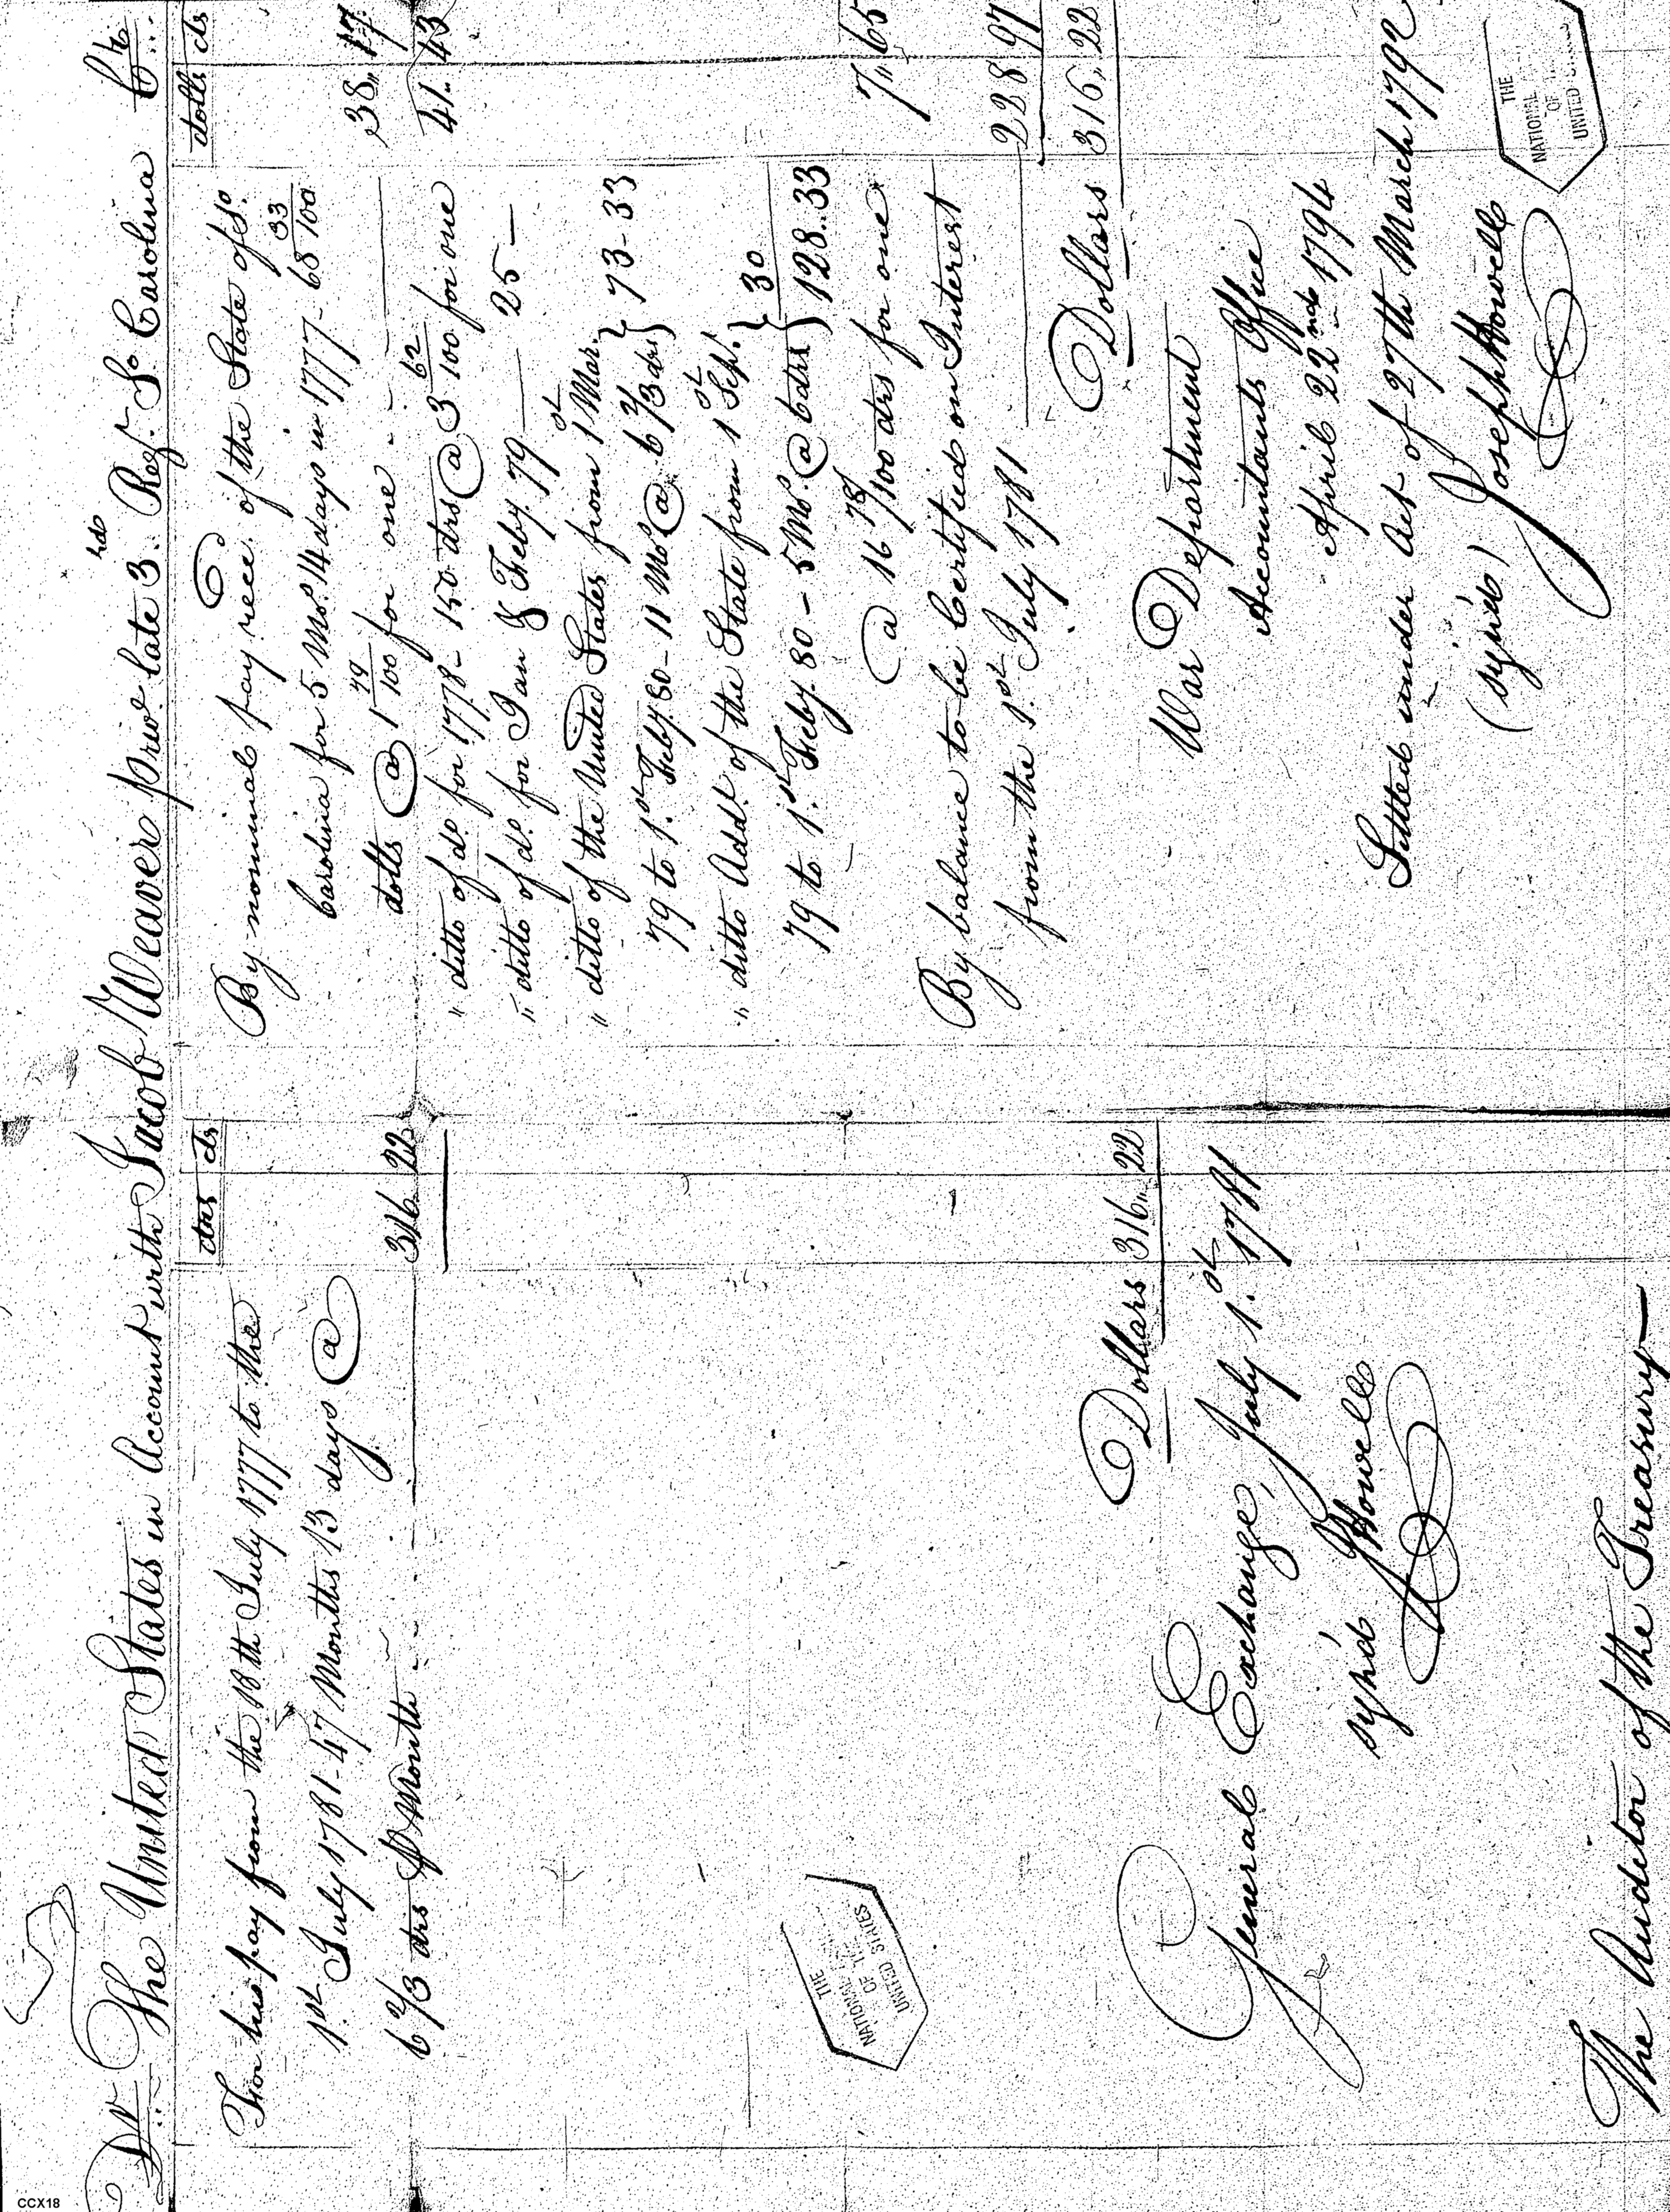 Dr. The United States in Account with Jacob Weaver priv.t late 3.rd Reg.t So Carolina Cr.
drs cts
For his pay from the 18th July 1777 to the
1st July 1781 - 47 Months 13 days @
6 2/3 drs P Month 316 22
Dollars 316,, 22
General Exchange, July 1.st 1781
sign'd JHowell
The Auditor of the Treasury
dolls cts
By nominal pay rece.d of the State of So.
Carolina for 5 Mos. 14 days in 1777 - 68 33/100
dolls @ 1 79/100 for one 38,, 17
" ditto of do. for 1778 - 150 drs @ 3 62/100 for one 41.. 43
" ditto of do. for Jan & Feby. 79 25 —
" ditto of the United States from 1st Mar.
79 to 1.st Feby. 80 - 11 Mos. @ 6 2/3 drs } 73 - 33
" ditto Add.l of the State from 1st Sep.t
79 to 1.st Feby. 80 - 5 Mos. @ 6 drs } 30
128..33
@ 16 78/100 drs for one 7,, 65
By balance to be Certified on Interest
from the 1.st July 1781 228 97
Dollars 316,, 22
War Department
Accountants Office
April 22nd 1794
Settled under Act of 27th March 1792
(sign'd) Joseph Howell
THE
NATIONAL
OF THE
UNITED STATES
THE
NATIONAL
OF
UNITED
CCX18